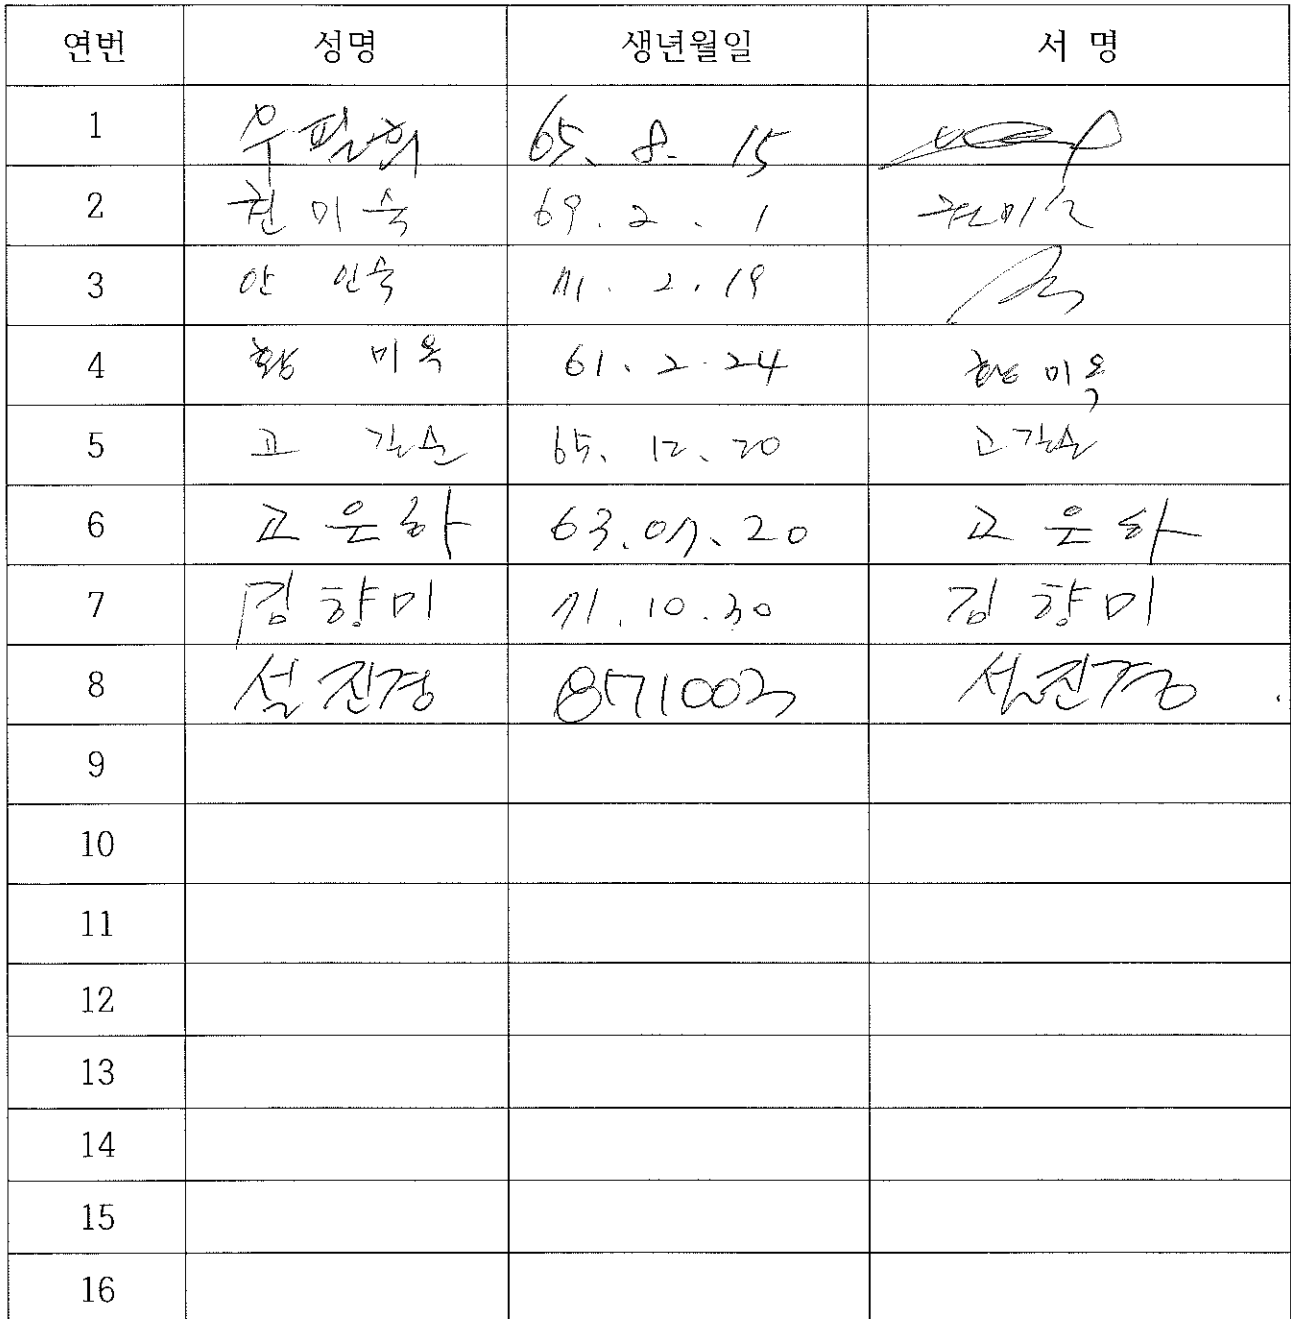 연번 성명 생년월일 서 명
1 우필희 65. 8. 15
2 권미숙 69. 2. 1 권미숙
3 안 인숙 71. 2. 19
4 황 미옥 61. 2. 24 황 미옥
5 고 길순 65. 12. 20 고길순
6 고은하 63. 07. 20 고은하
7 김향미 71. 10. 30 김향미
8 설진경 871003 설진경
9
10
11
12
13
14
15
16